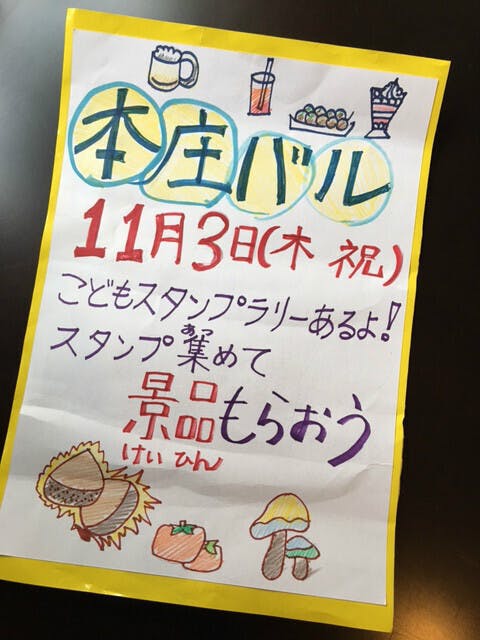 本庄バル
11月3日(木 祝)
こどもスタンプラリーあるよ!
あつ
スタンプ集めて
景品もらおう
けいひん